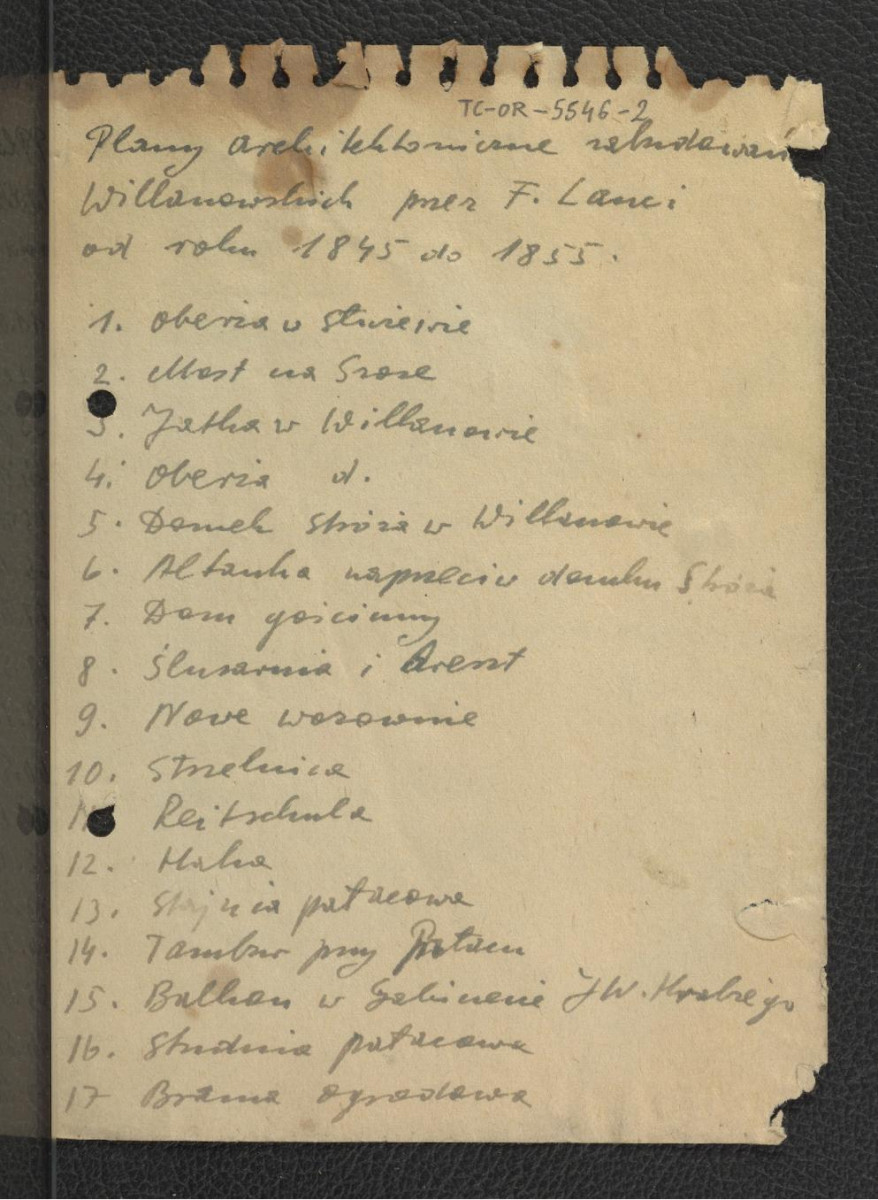 TC-OR-5546-2
Plany architektoniczne zabudowań
Willanowskich przez F. Lanci
od roku 1845 do 1855.
1. Oberża w Służewie
2. Most na Szosie
3. Jatka w Willanowie
4. Oberża d.
5. Domek stróża w Willanowie
6. Altanka naprzeciw domku Stróża
7. Dom gościnny
8. Ślusarnia i Areszt
9. Nowe wozownie
10. Strzelnica
11. Reitschula
12.
13. Stajnia pałacowa
14. Tambur przy Pałacu
15. Balkon w Gabinecie JW. Hrabiego
16. Studnia pałacowa
17 Brama ogrodowa